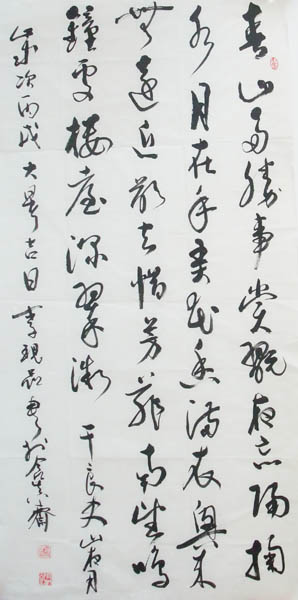 春山多勝事賞翫夜忘歸掬
水月在手弄花香滿衣興來
無遠近欲去惜芳菲南望鳴
鐘處樓臺深翠微 于良史山夜月
歲次丙戌大暑吉日李現書於齋